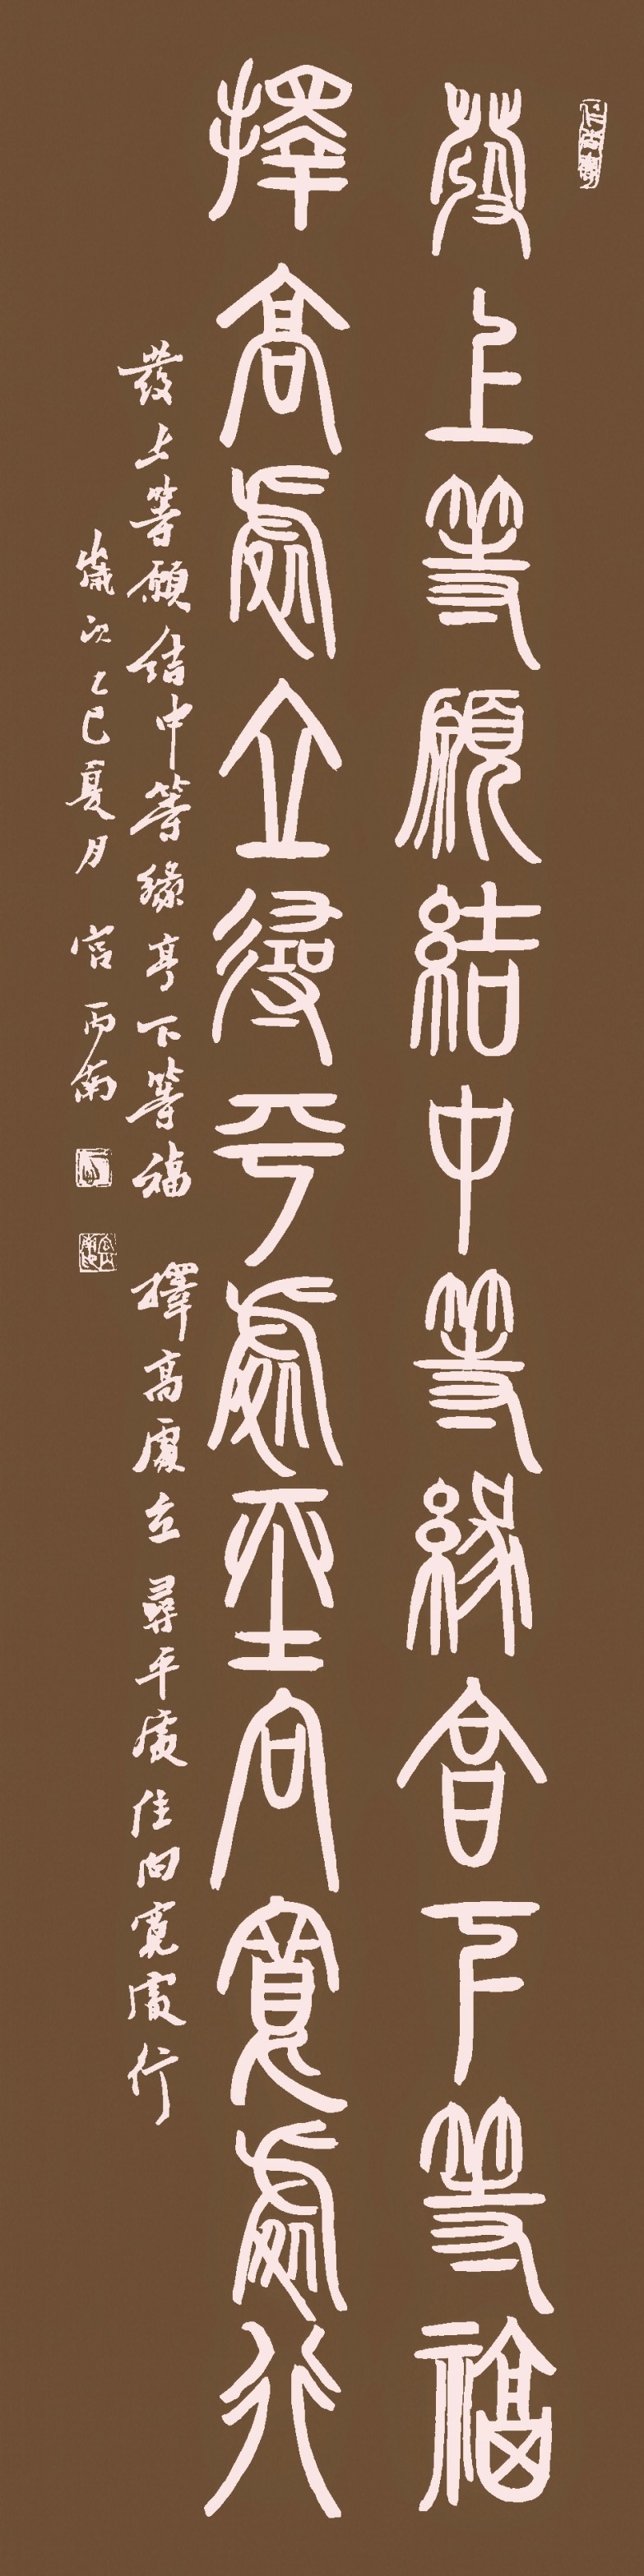 發上等願結中等緣享下等福
擇高處立尋平處坐向寬處行
發上等願結中等緣享下等福 擇高處立 尋平處住向寬處行
歲次乙巳夏月 宫丙南